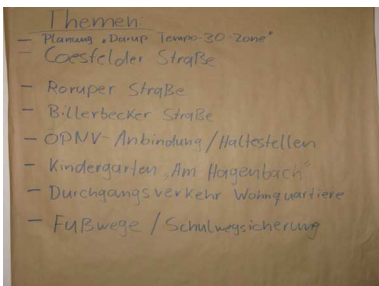 Themen:
- Planung "Darup Tempo-30-Zone"
- Coesfelder Straße
- Roruper Straße
- Billerbecker Straße
- ÖPNV-Anbindung/Haltestellen
- Kindergarten "Am Hagenbach"
- Durchgangsverkehr Wohnquartiere
- Fußwege / Schulwegsicherung